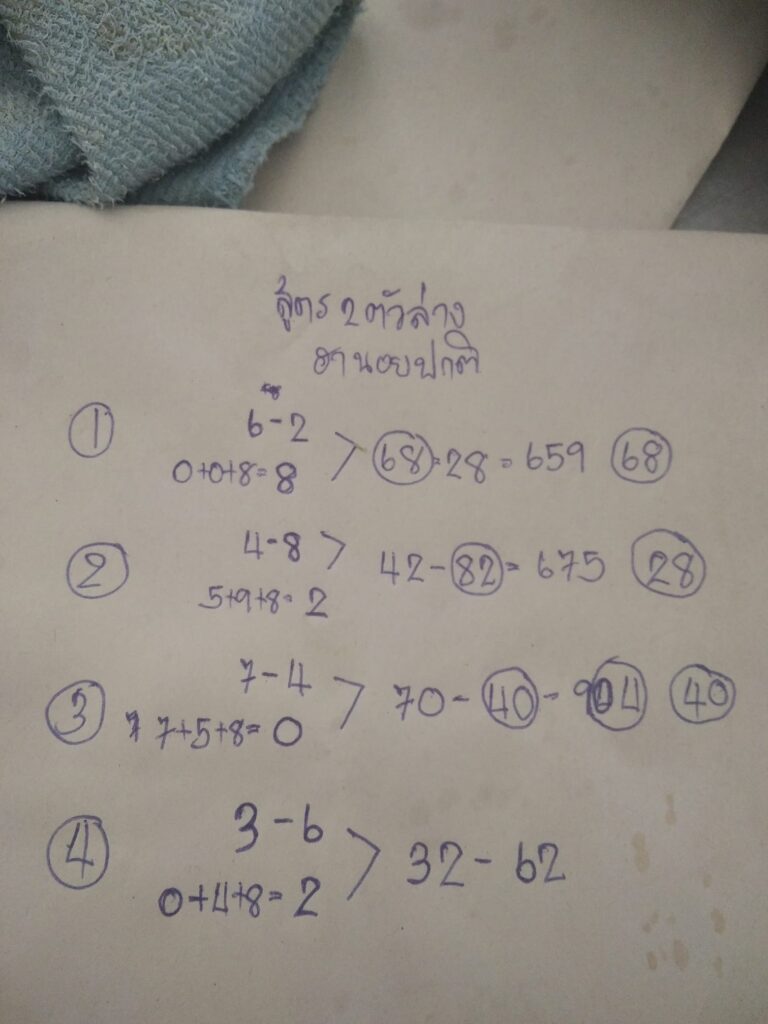 สูตร 2 ตัวล่าง
ฮานอยปกติ
① 6-2
0+0+8=8 > 68=28=659 68
② 4-8 >
5+9+8=2 42-82=675 28
③ 7-4
7+5+8=0 > 70-40-904 40
④ 3-6
0+4+8=2 > 32-62